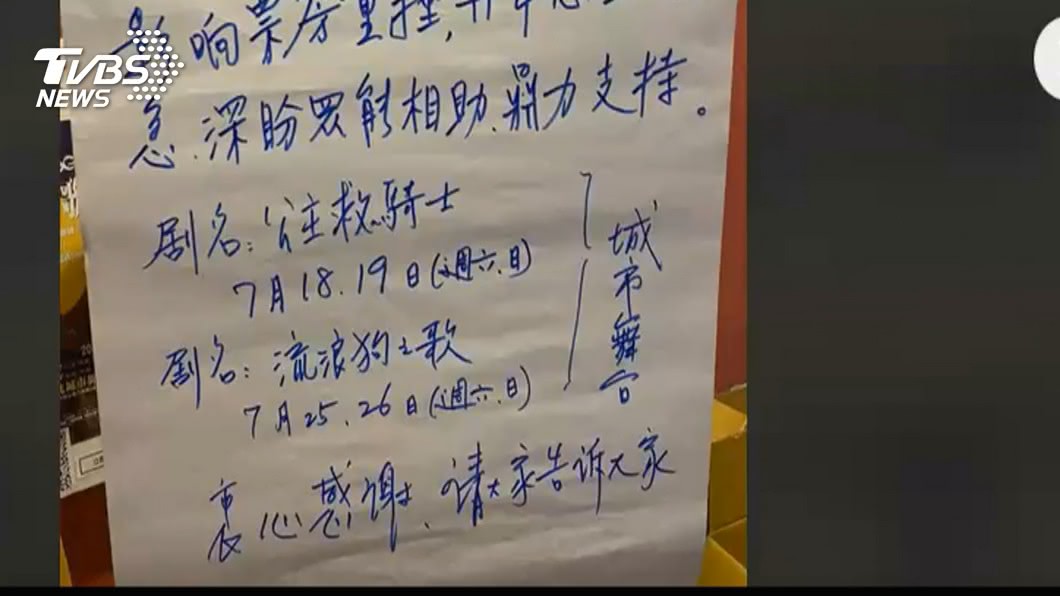 TVBS
NEWS
影响票房重挫,
急、深盼眾能相助、鼎力支持。
剧名:公主救騎士
7月18.19日(週六.日)
剧名:流浪狗之歌
7月25.26日(週六.日)
城市舞台
衷心感谢、请大家告诉大家